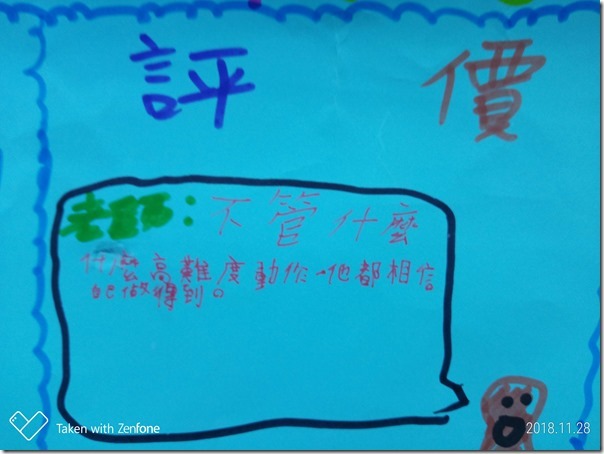 評價
老師：不管什麼
什麼高難度動作,他都相信
自己做得到。
Taken with Zenfone
2018.11.28